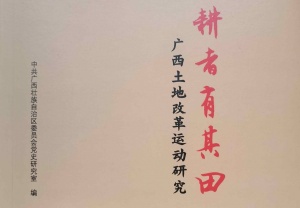 耕者有其田
广西土地改革运动研究
中共广西壮族自治区委员会党史研究室 编